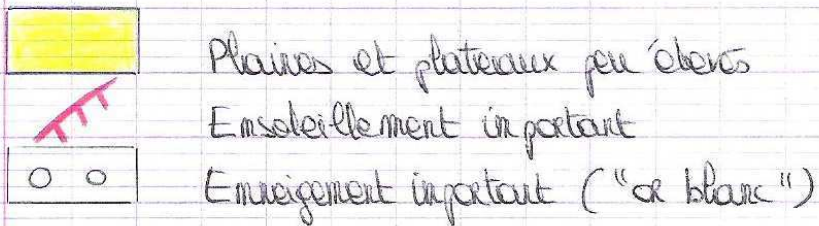 Plaines et plateaux peu élevés
Ensoleillement important
Enneigement important ("or blanc")